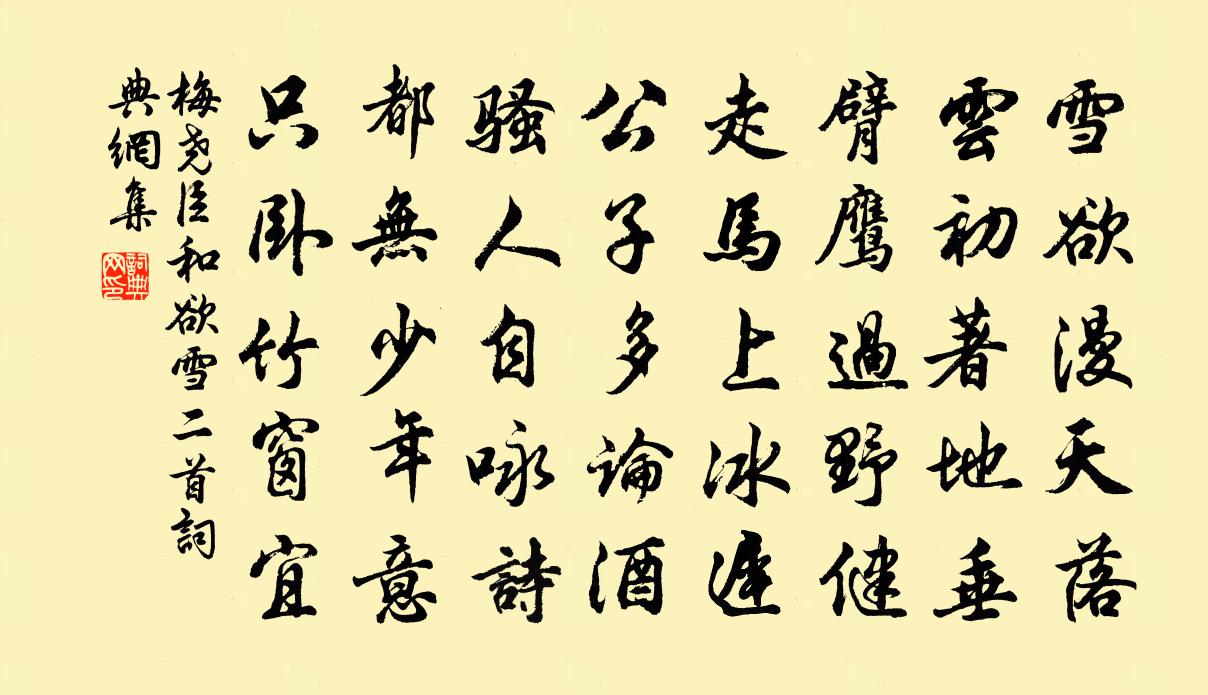 雪欲漫天落
雲初著地垂
臂鹰過野健
走馬上冰遲
公子多論酒
騷人自咏詩
都無少年意
只卧竹窗宜
梅尧臣和欲雪二首詞
典網集
詞典
网印